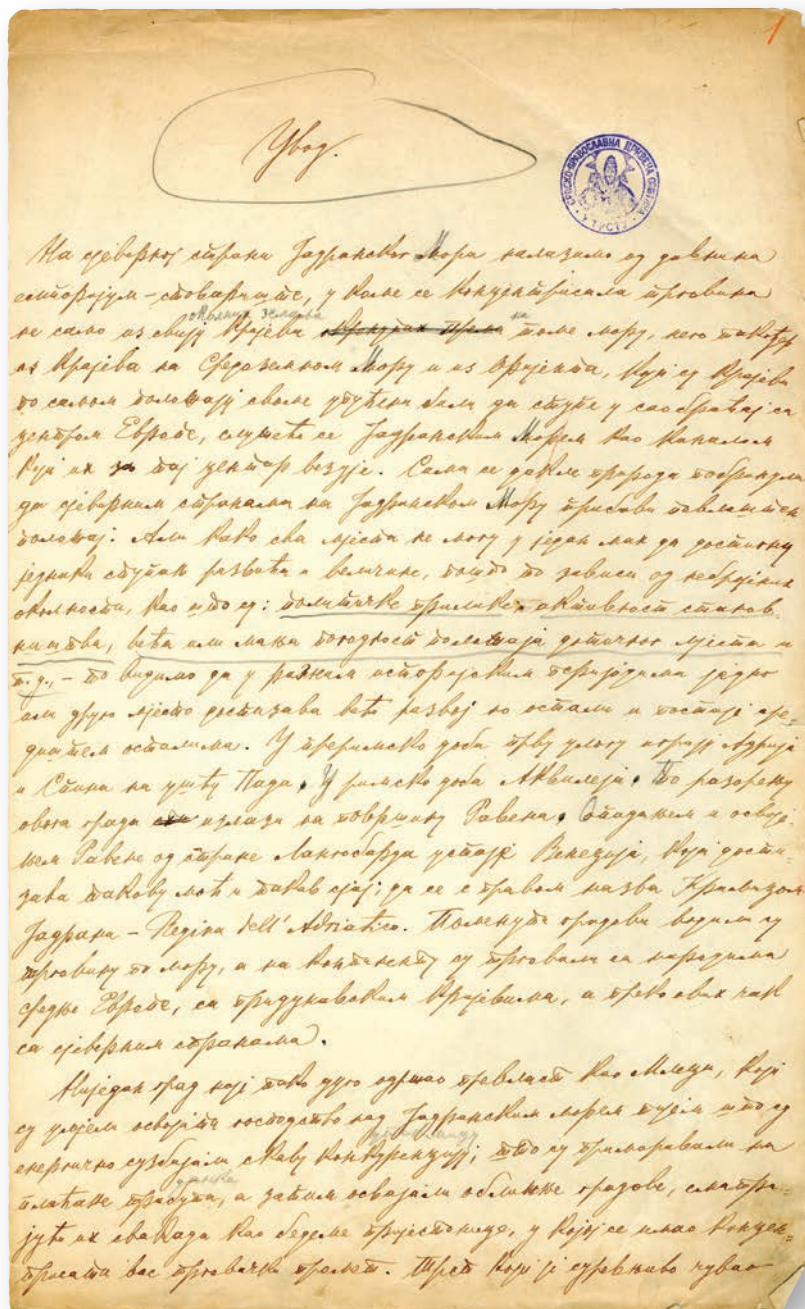 1
Увод.
СРПСКО-ПРАВОСЛАВНА ЦРКВЕНА ОПШТИНА У ТРСТУ
На сјеверној страни Јадранског Мора налазимо од давнина
емпоријум – стовариште, у коме се концентрисала трговина
околних земаља на
не само из свију крајева томе мору, него такођер
из крајева на Средоземном Мору и из Оријента, који су крајеви
по самом положају своме упућени били да ступе у саобраћај са
центром Европе, служећи се Јадранским Морем као каналом
који их за тај центар везује. Сама се дакле природа побринула
да сјеверним странама на Јадранском Мору прибави повлаштен
положај: Али како сва мјеста не могу у један мах да достигну
једнаки ступањ развића и величине, пошто то зависи од небројених
околности, као што су: политичке прилике, активност станов-
ништва, већа или мања погодност положаја дотичног мјеста и
т.д., – то видимо да у разним историјским перијодима једно
или друго мјесто достизава већи развој но остали и постаје сре-
диштем осталима. У преримско доба прву улогу играју Адрија
и Спина на ушћу Пада. У римско доба Аквилеја. По разорењу
овога града излази на површину Равена. Опадањем и освоје-
њем Равене од стране Лангобарда устаје Венеција, која дости-
зава такову моћ и такав сјај, да се с правом назва Краљицом
Јадрана – Regina dell' Adriatico. Поменути градови водили су
трговину по мору, а на континенту су трговали са народима
средње Европе, са придунавским крајевима, а преко ових чак
са сјеверним странама.
Ниједан град није тако дуго одржао превласт као Млеци, који
су умјели освојити господство над Јадранским морем тијем што су
енергично сузбијали сваку конкуренцију; што су приморавали на
данка
плаћање трибута, а затим освајали оближње градове, сматра-
јући их свакада као бедеме пријестонице, у којој се имао концен-
трисати вас трговачки промет. Трст који је суревњиво чувао